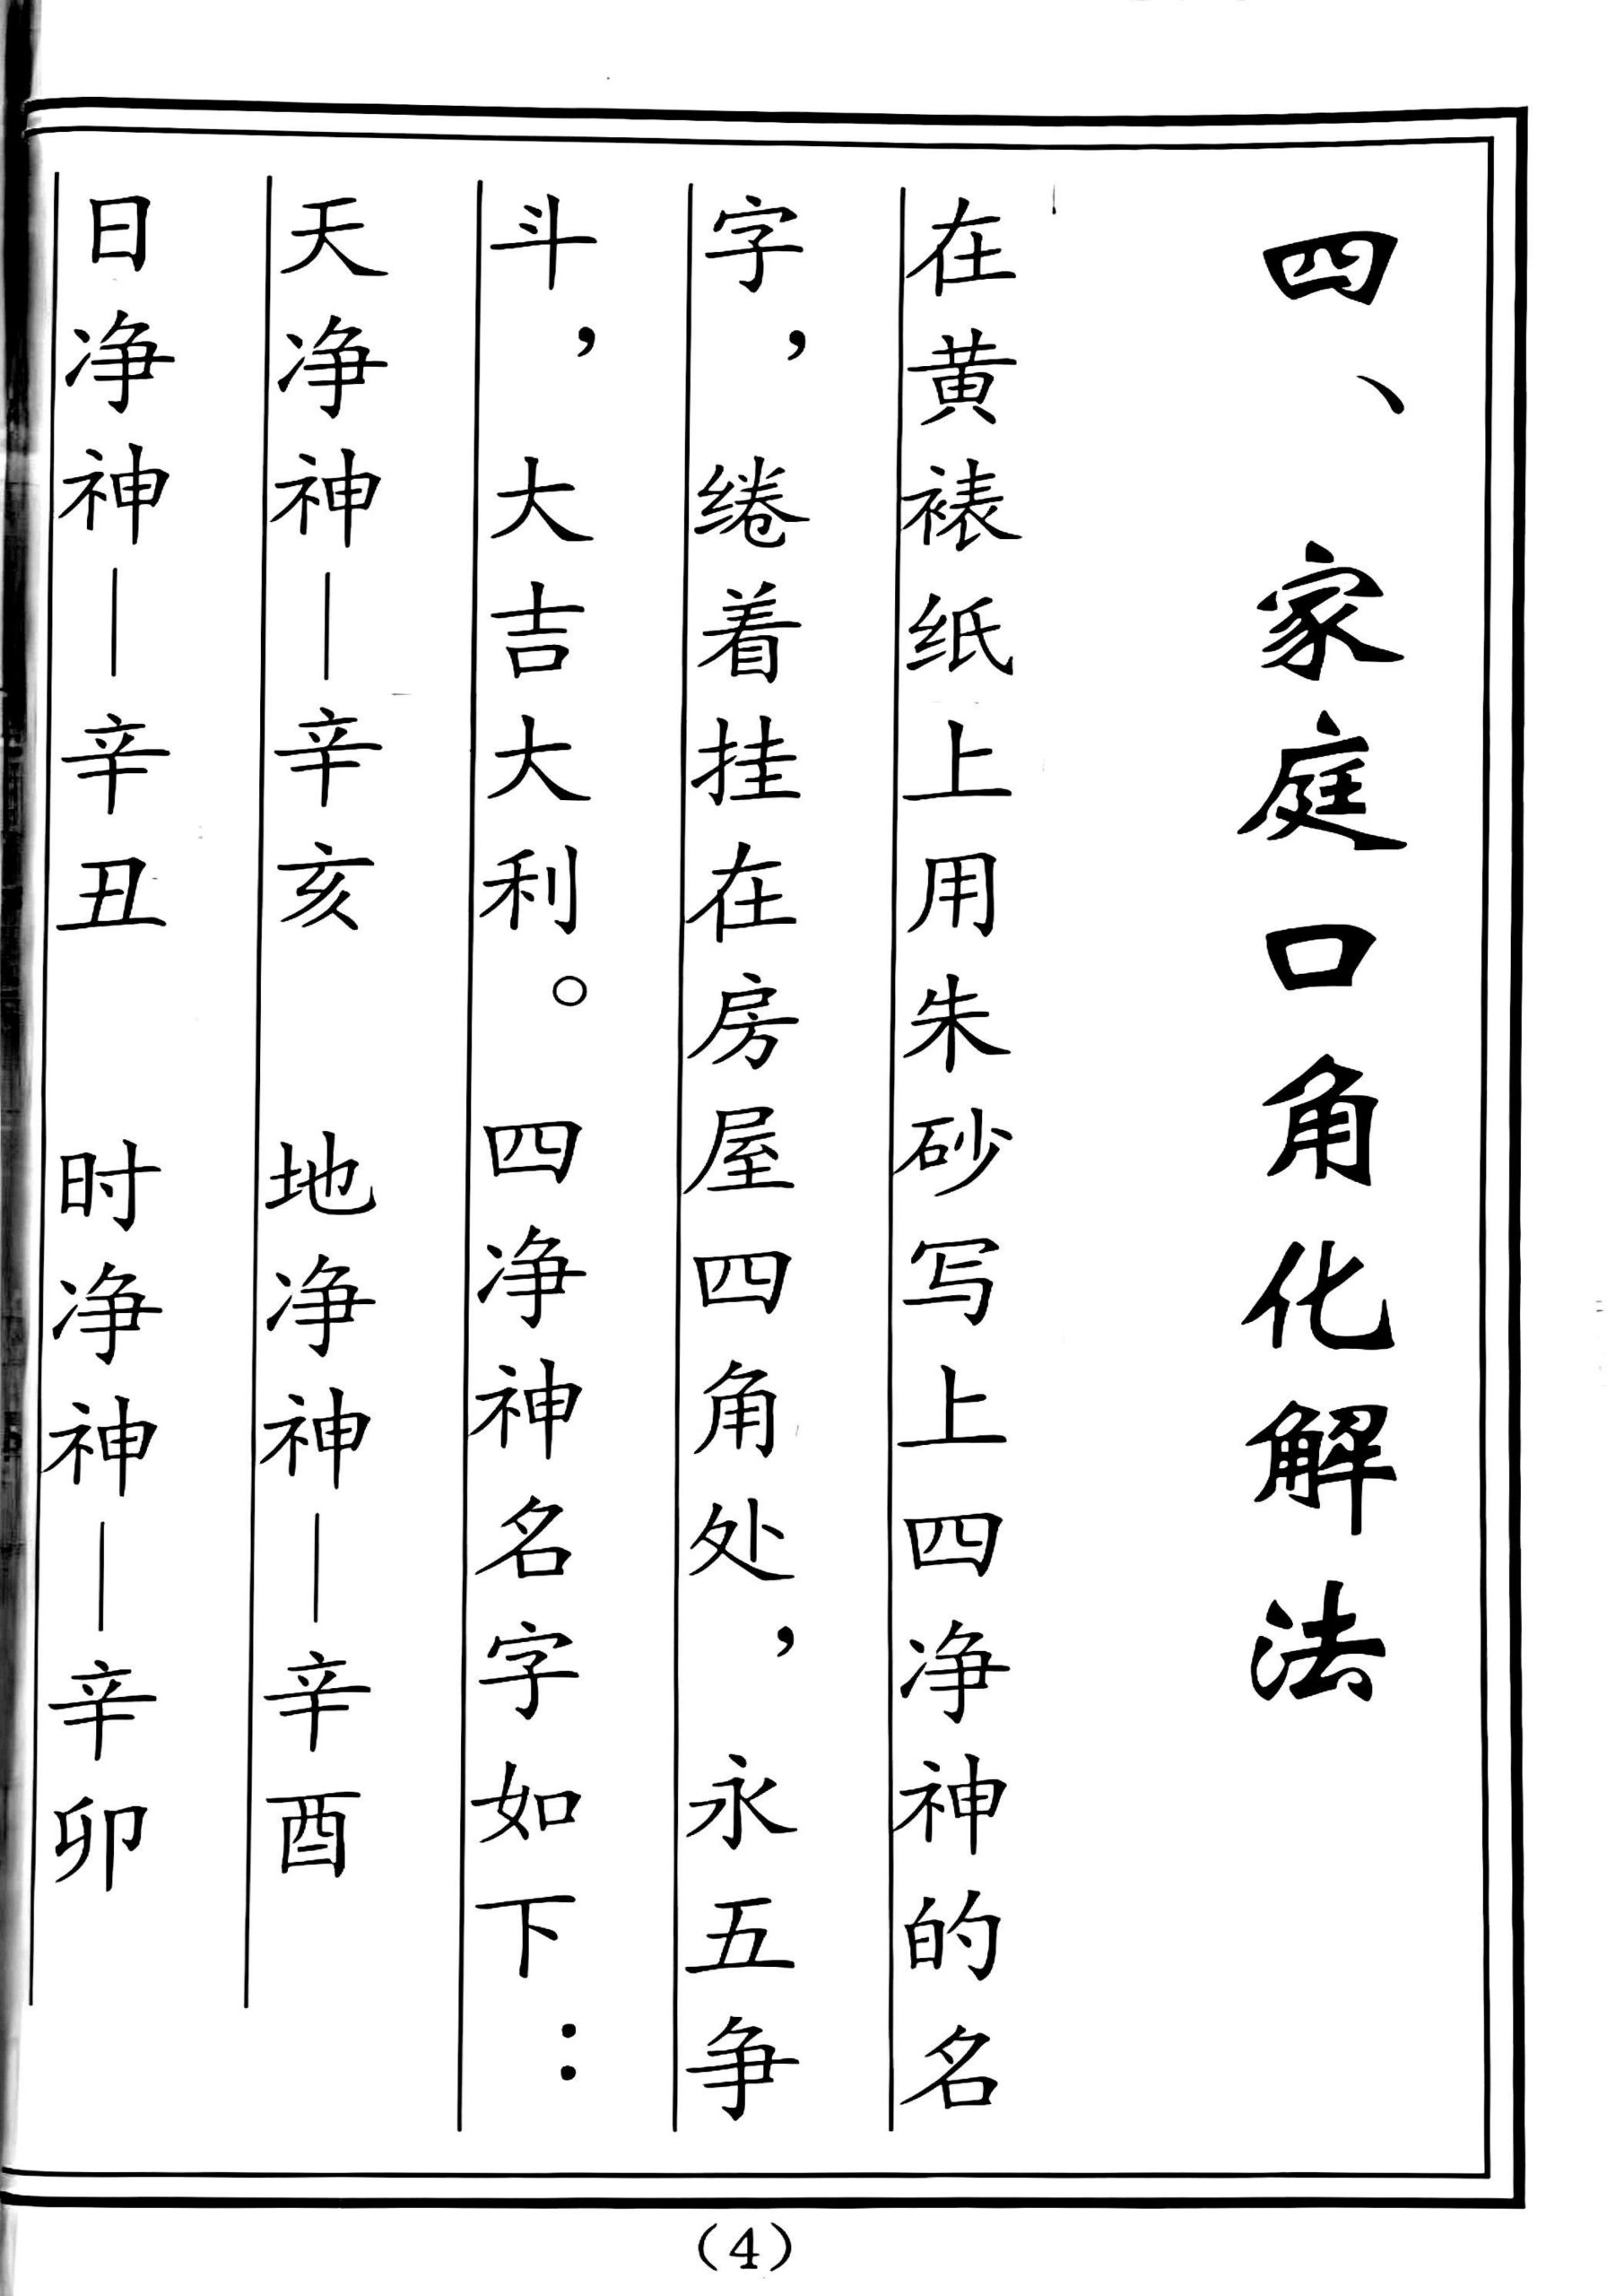 四、家庭口角化解法
在黄裱纸上用朱砂写上四净神的名
字，绻着挂在房屋四角处，永五争
斗，大吉大利。四净神名字如下：
天净神—辛亥 地净神—辛酉
日净神—辛丑 时净神—辛卯
（4）